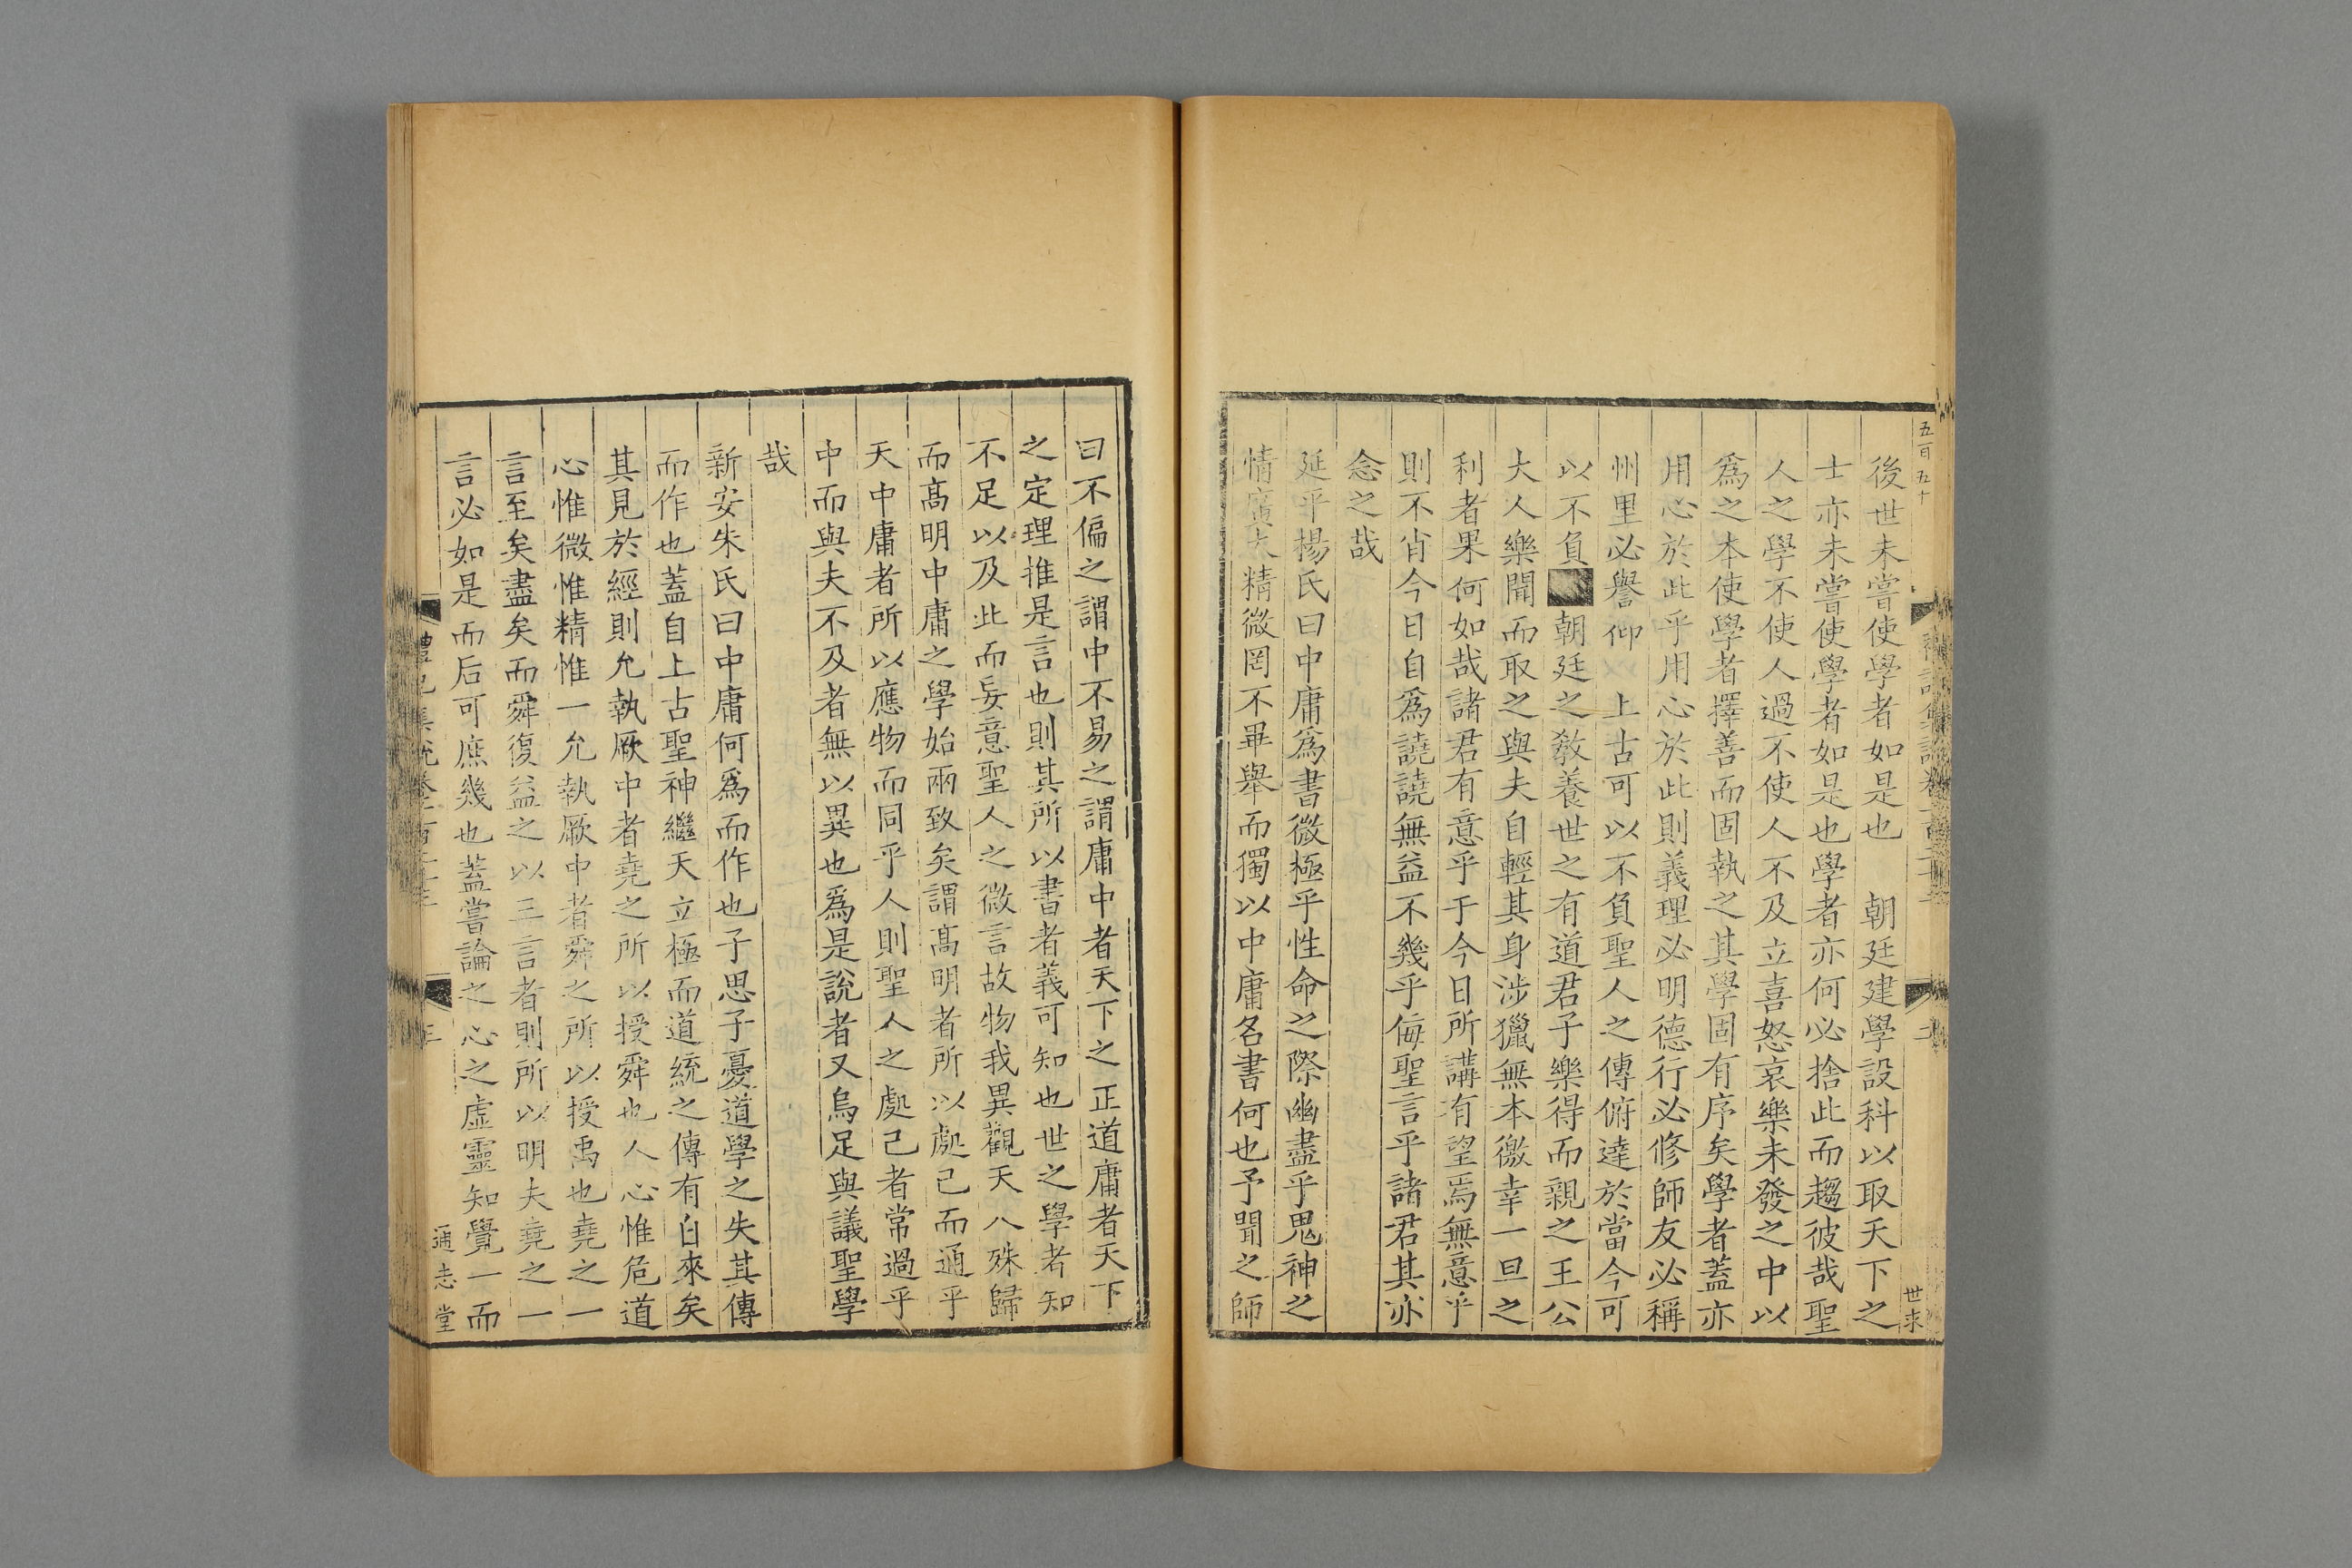 五百五十
後世未嘗使學者如是也　朝廷建學設科以取天下之
士亦未嘗使學者如是也學者亦何必捨此而趨彼哉聖
人之學不使人過不使人不及立喜怒哀樂未發之中以
爲之本使學者擇善而固執之其學固有序矣學者蓋亦
用心於此乎用心於此則義理必明德行必修師友必稱
州里必譽仰以上古可以不負聖人之傳俯達於當今可
以不負朝廷之敎養世之有道君子樂得而親之王公
大人樂聞而取之與夫自輕其身涉獵無本徼幸一旦之
利者果何如哉諸君有意乎于今日所講有望焉無意乎
則不肖今日自爲譊譊無益不幾乎侮聖言乎諸君其亦
念之哉
延平楊氏曰中庸爲書微極乎性命之際幽盡乎鬼神之
情廣大精微罔不畢舉而獨以中庸名書何也予聞之師
二
世求
曰不偏之謂中不易之謂庸中者天下之正道庸者天下
之定理推是言也則其所以書者義可知也世之學者知
不足以及此而妄意聖人之微言故物我異觀天人殊歸
而髙明中庸之學始兩致矣謂髙明者所以處己而通乎
天中庸者所以應物而同乎人則聖人之處己者常過乎
中而與夫不及者無以異也爲是說者又烏足與議聖學
哉
新安朱氏曰中庸何爲而作也子思子憂道學之失其傳
而作也蓋自上古聖神繼天立極而道統之傳有自來矣
其見於經則允執厥中者堯之所以授舜也人心惟危道
心惟微惟精惟一允執厥中者舜之所以授禹也堯之一
言至矣盡矣而舜復益之以三言者則所以明夫堯之一
言必如是而后可庶幾也蓋嘗論之心之虛靈知覺一而
三
通志堂